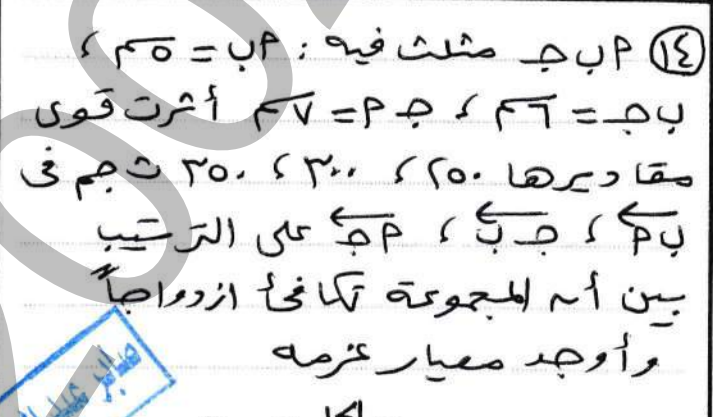 ١٤ ٢ ب ج مثلث فيه : ٢ ب = ٥ سم ،
ب ج = ٦ سم ، ج ٢ = ٧ سم أثرت قوى
مقاديرها ٢٥٠ ، ٣٠٠ ، ٣٥٠ ث جم فى
ب ٢ ، ج ب ، ٢ ج على الترتيب
بين أن المجموعة تكافئ ازدواجاً
وأوجد معيار عزمه